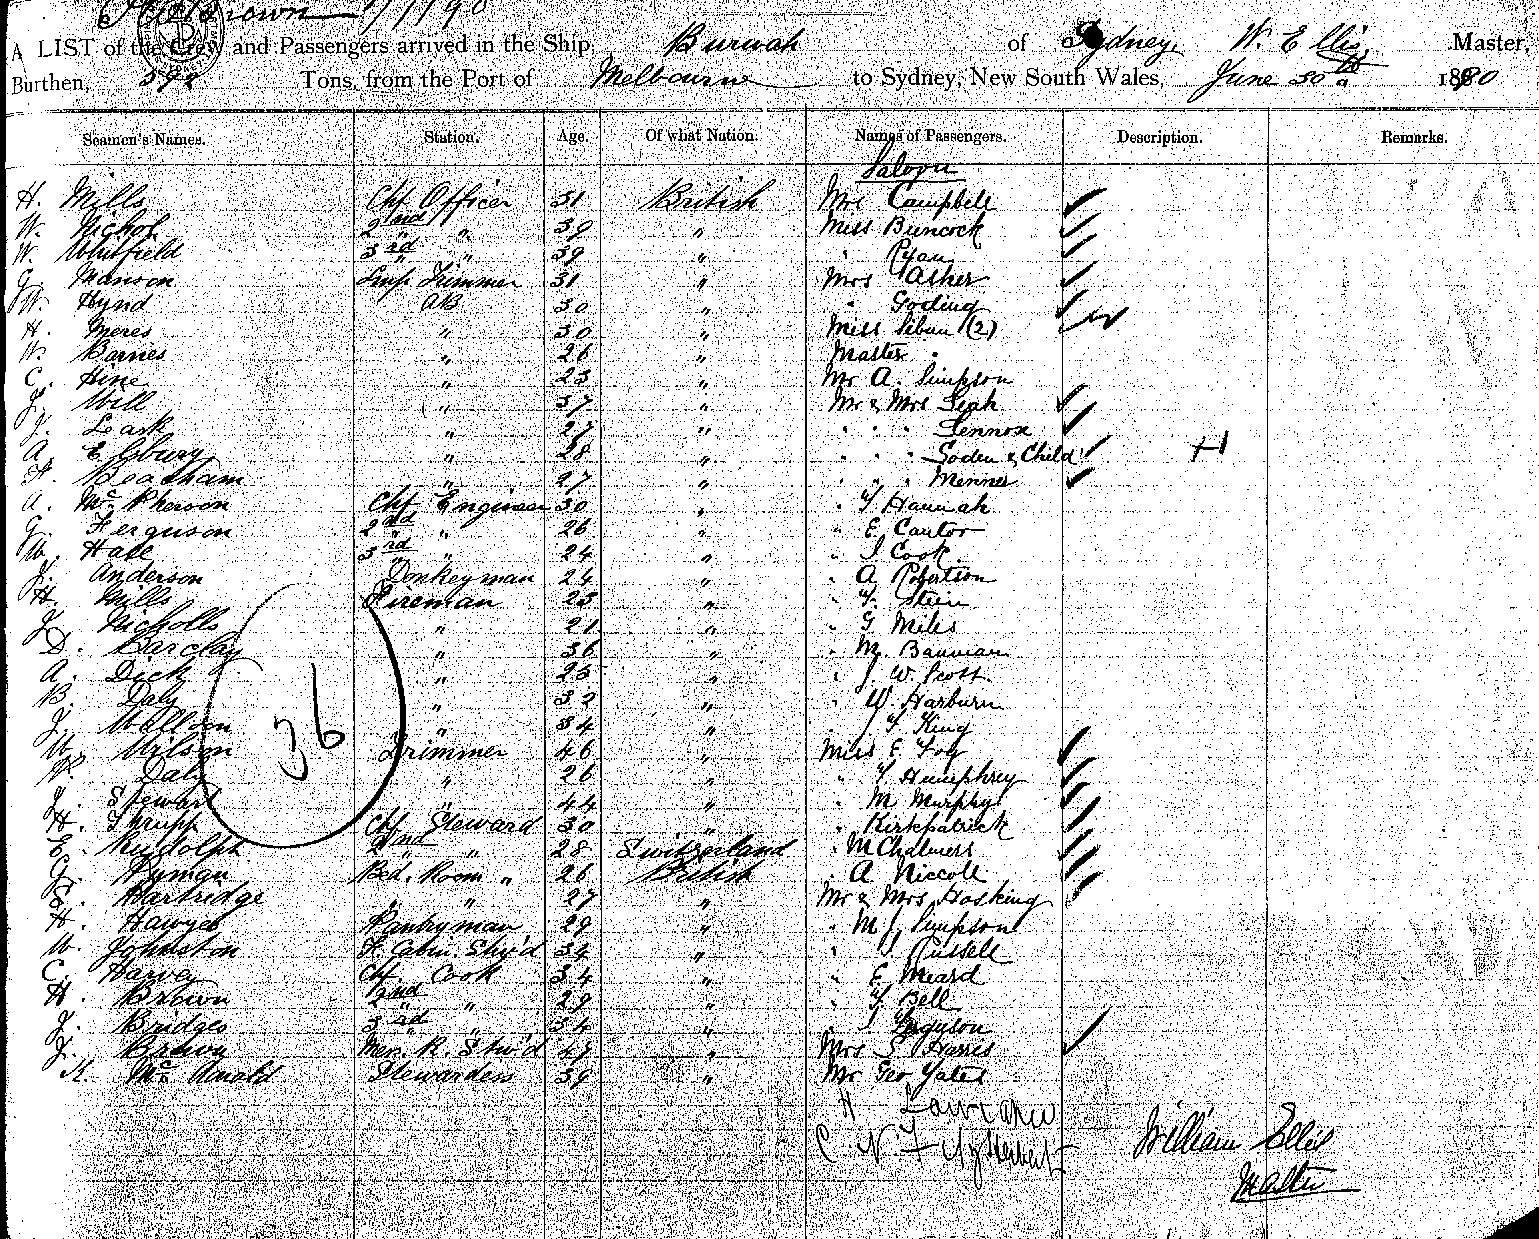 Brown 1/7/90
A LIST of the Crew and Passengers arrived in the Ship, Burwah of Sydney, W. Ellis, Master,
Burthen, 592 Tons, from the Port of Melbourne to Sydney, New South Wales, June 30th 1890
Seamen's Names. Station. Age. Of what Nation. Names of Passengers. Description. Remarks.
Saloon
H. Mills Chf Officer 31 British Mrs Campbell
W. Nichol 2nd " 39 " Miss Buncock
W. Whitfield 3rd " 39 " " Ryan
G. Manson Lmp Trimmer 31 " Mrs Asher
W. Hynd AB 30 " " Goding
H. Meres " 30 " Miss (2)
W. Barnes " 26 " Master "
C. Hine " 23 " Mr A. Simpson
J. Will " 37 " Mr & Mrs Leah
J. Leask " 27 " " " " Lennox
A. Elsbury " 28 " " " " Soden & Child H
" 27 " " " "
A. McPherson Chf Engineer 30 " " T Hannah
G. Ferguson 2nd " 26 " " E. Cantor
W. Hall 3rd " 24 " " J Cook
J. Anderson Donkeyman 24 " " A Robertson
H. Mills Fireman 25 " " T. Stein
J. Nicholls " 21 " " G Miles
D. Barclay " 36 " " M. Bauman
A. Dick " 25 " " J. W. Scott.
B. Daly " 32 " " W. Harburn
J. " 34 " " T King
W. Wilson Trimmer 46 " Miss E Foy
W. Daly " 26 " " T Humphrey
J. Stewart " 44 " " M Murphy
H. Thrupp Chf Steward 30 " " Kirkpatrick
E. Rudolph 2nd " 28 Switzerland " McChalmers
G. Hyman Bed. Room " 26 British " A Niccoll
S. Hartridge " " 27 " Mr & Mrs Hosking
H. Hawyes Pantryman 29 " " M J. Simpson
W. Johnston F. Cabin. Stw'd 34 " " J Russell
C. Harvey Chf Cook 34 " " E. Meard
H. Brown 2nd " 29 " " T Bell
J. Bridges 3rd " 34 " " J Ferguson
J. Brown Mes. R. Stw'd 47 " Mrs S Harris
K. Stewardess 39 " Mr Geo Yates
36
H Lawrance
C N F
William Ellis
Master